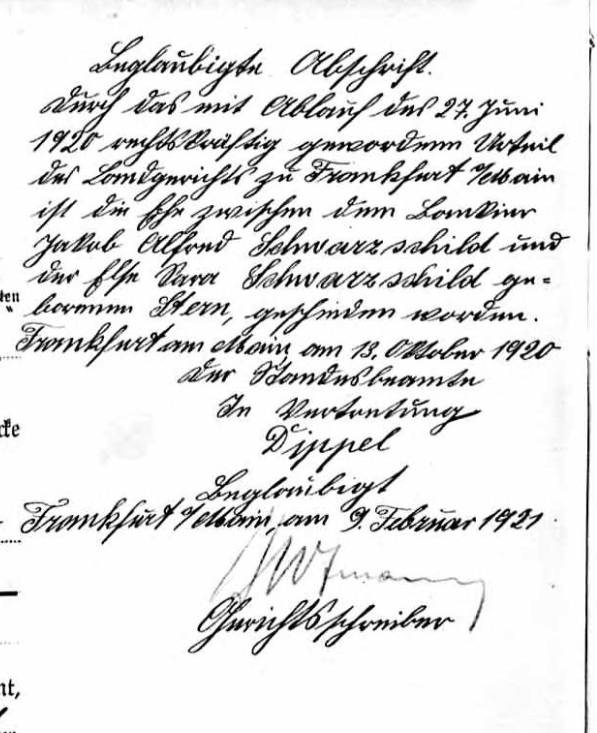 Beglaubigte Abschrift.
Durch das mit Ablauf des 27. Juni
1920 rechtskräftig gewordenen Urteil
des Landgerichts zu Frankfurt /Main
ist die Ehe zwischen dem Bankier
Jakob Alfred Schwarzschild und
der Else Sara Schwarzschild ge-
borenen Stern, geschieden worden.
ten
Frankfurt am Main, am 13. Oktober 1920
Der Standesbeamte
In Vertretung
cke
Dippel
Beglaubigt
Frankfurt /Main, am 9. Februar 1921.
Gerichtsschreiber
nt,